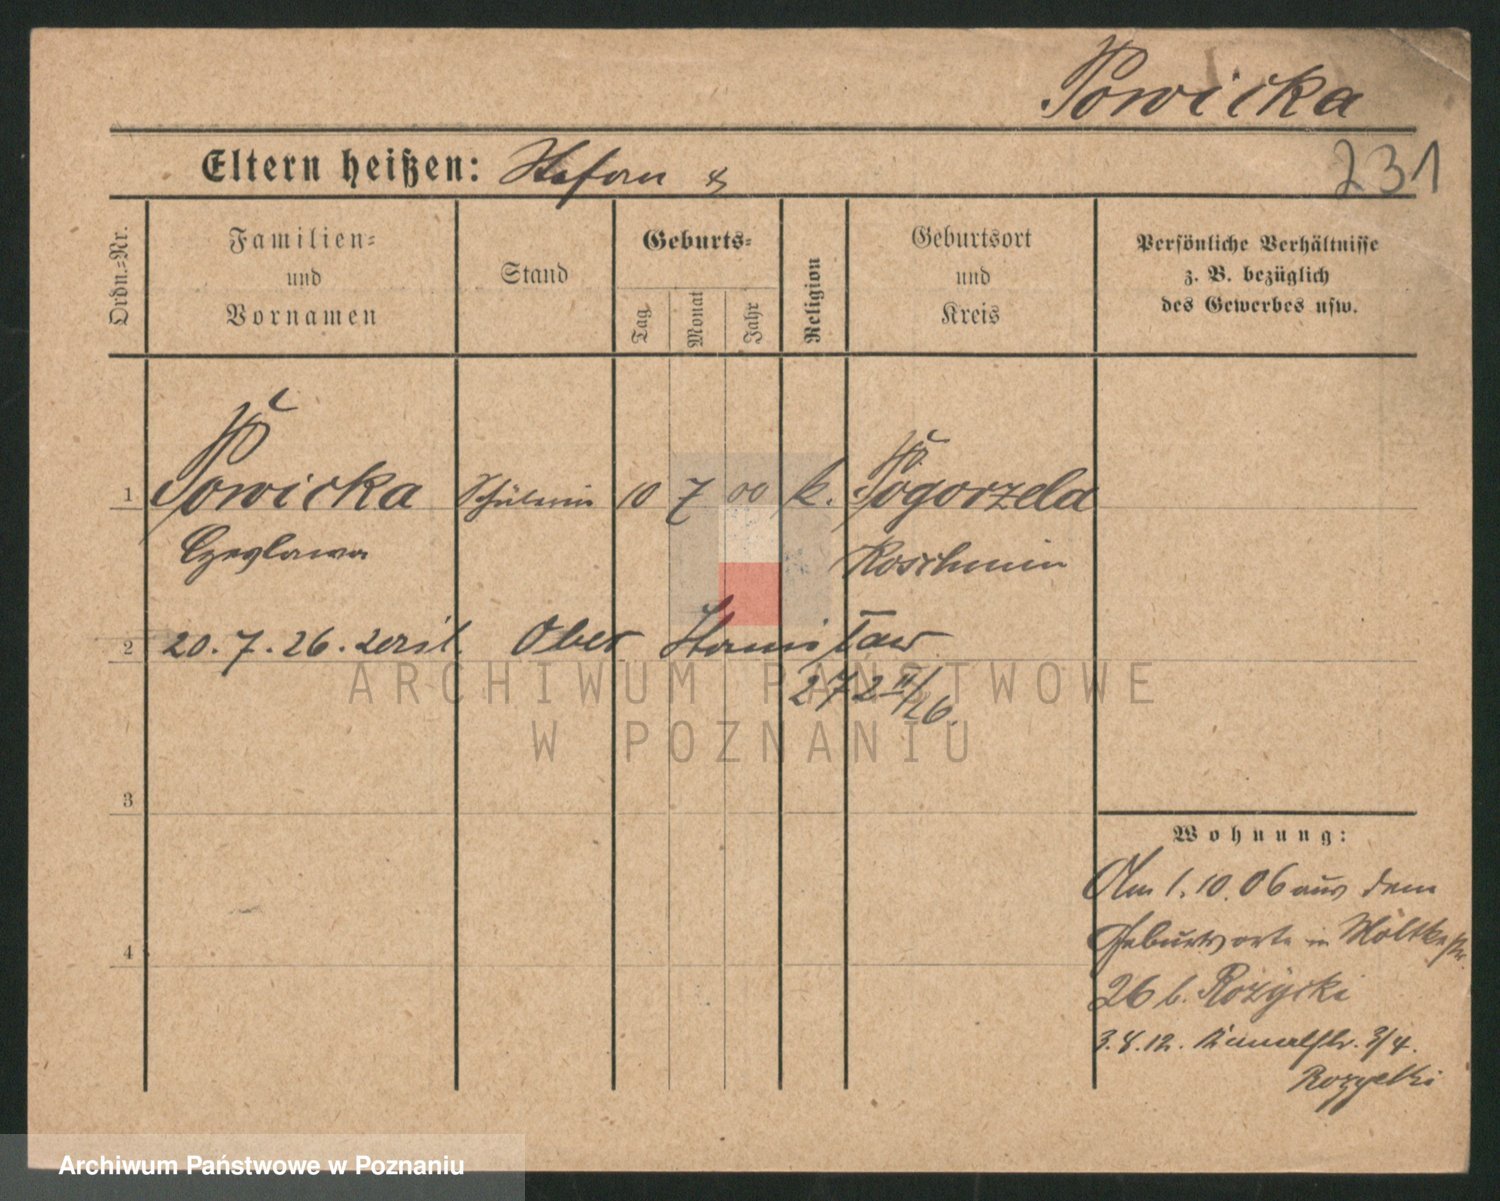 Powicka
231
Eltern heißen: Stefan &
Ordn.-Nr.
Familien-
und
Vornamen
Stand
Geburts-
Tag
Monat
Jahr
Religion
Geburtsort
und
Kreis
Persönliche Verhältnisse
z. B. bezüglich
des Gewerbes usw.
1 Powicka Schülerin 10 7 00 k. Pogorzela
Czeslawa Koschmin
2 20. 7. 26. Ober Stanisław
272 II/26.
3
4
Wohnung:
Am 1. 10. 06 aus dem
Geburtsorte in Moltkestr.
26 b. Rożycki
3. 8. 12. 3/4.
Rozycki
ARCHIWUM PAŃSTWOWE
W POZNANIU
Archiwum Państwowe w Poznaniu